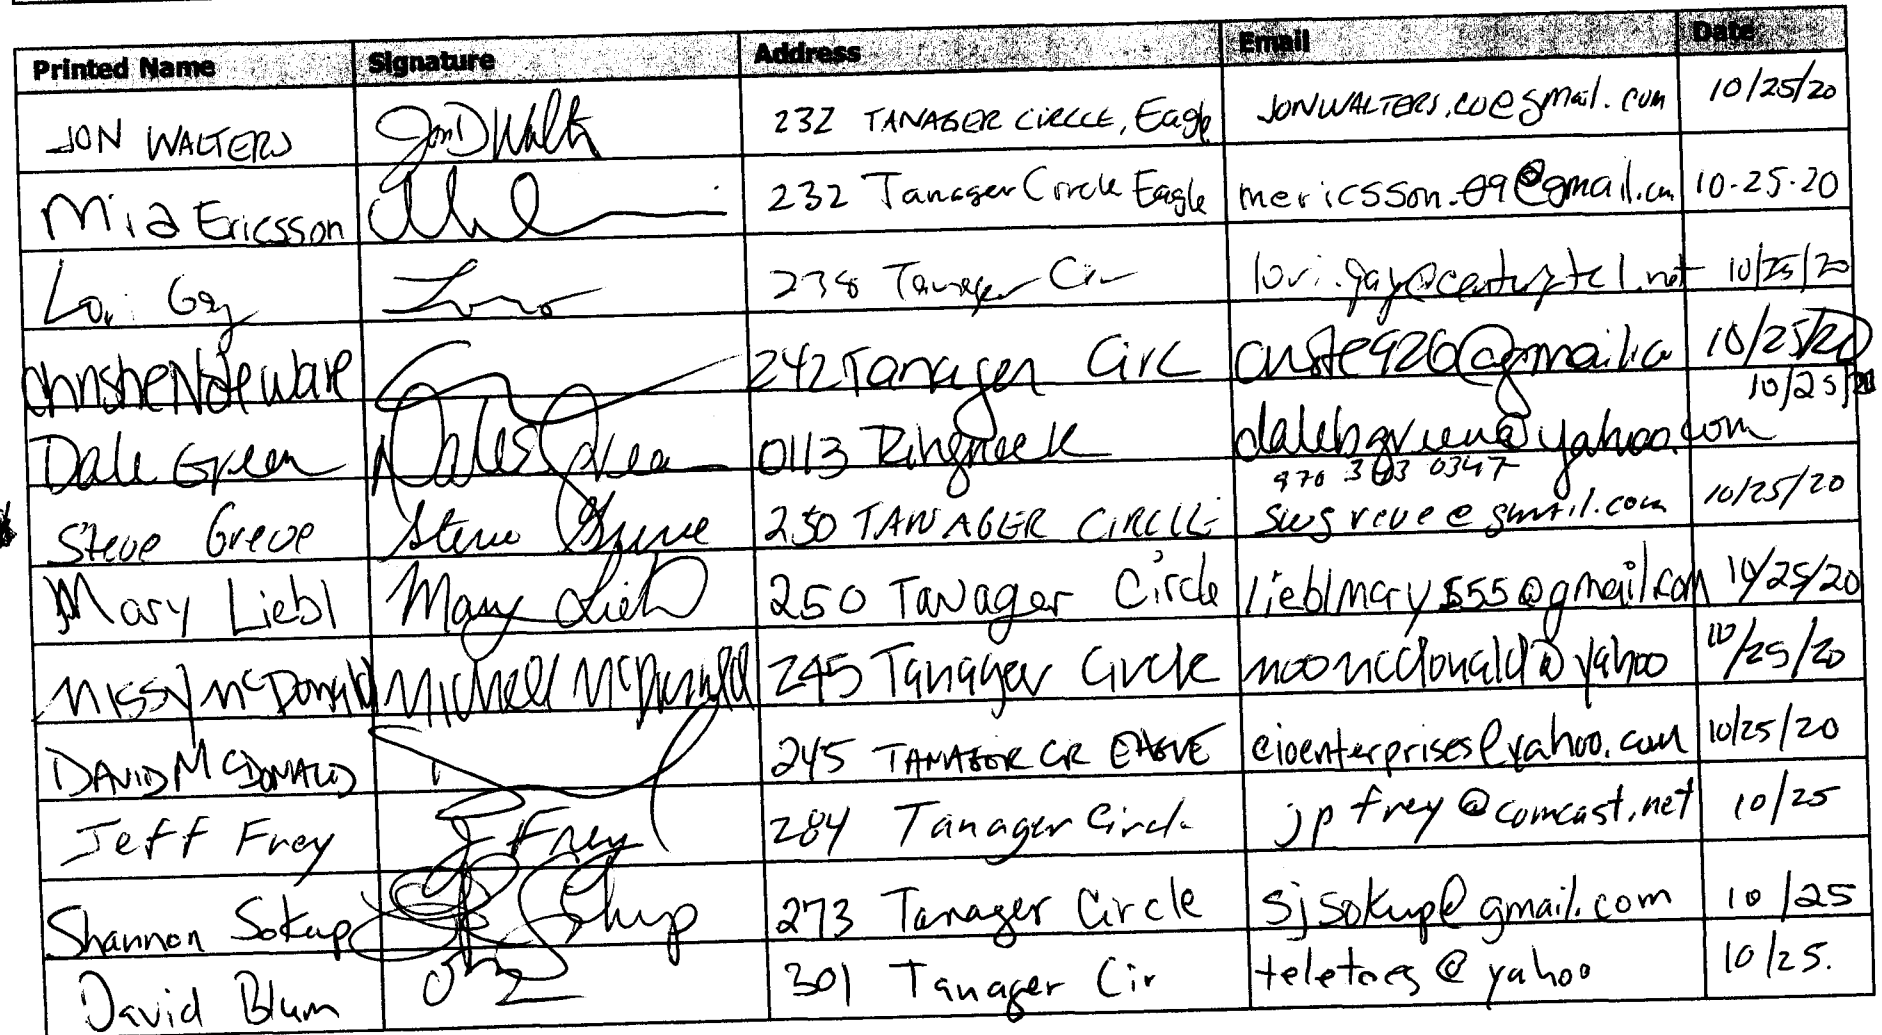 Printed Name Signature Address Email Date
JON WALTERS Jon D Walt 232 TANAGER CIRCLE, Eagle JONWALTERS.CO@gmail.com 10/25/20
Mia Ericsson 232 Tanager Circle Eagle mericsson.09@gmail.com 10-25-20
Lori Gay 238 Tanager Cir lori.gay@centurytel.net 10/25/20
242 Tanager Circ 10/25/20
Dale Green Dale Green 0113 Ringneck dalebgreen@yahoo.com 10/25/20
970 303 0347
Steve Greve Steve Greve 250 TANAGER CIRCLE swgreve@gmail.com 10/25/20
Mary Liebl Mary Liebl 250 Tanager Circle lieblmary555@gmail.com 10/25/20
Missy McDonald Michell McDonald 245 Tanager Circle moomcdonald@yahoo 10/25/20
DAVID McDONALD 245 TANAGER CR EAGLE eioenterprises@yahoo.com 10/25/20
Jeff Frey J Frey 284 Tanager Circle jpfrey@comcast.net 10/25
Shannon Sokup 273 Tanager Circle sjsokup@gmail.com 10/25
David Blum 301 Tanager Cir teletoes@yahoo 10/25.